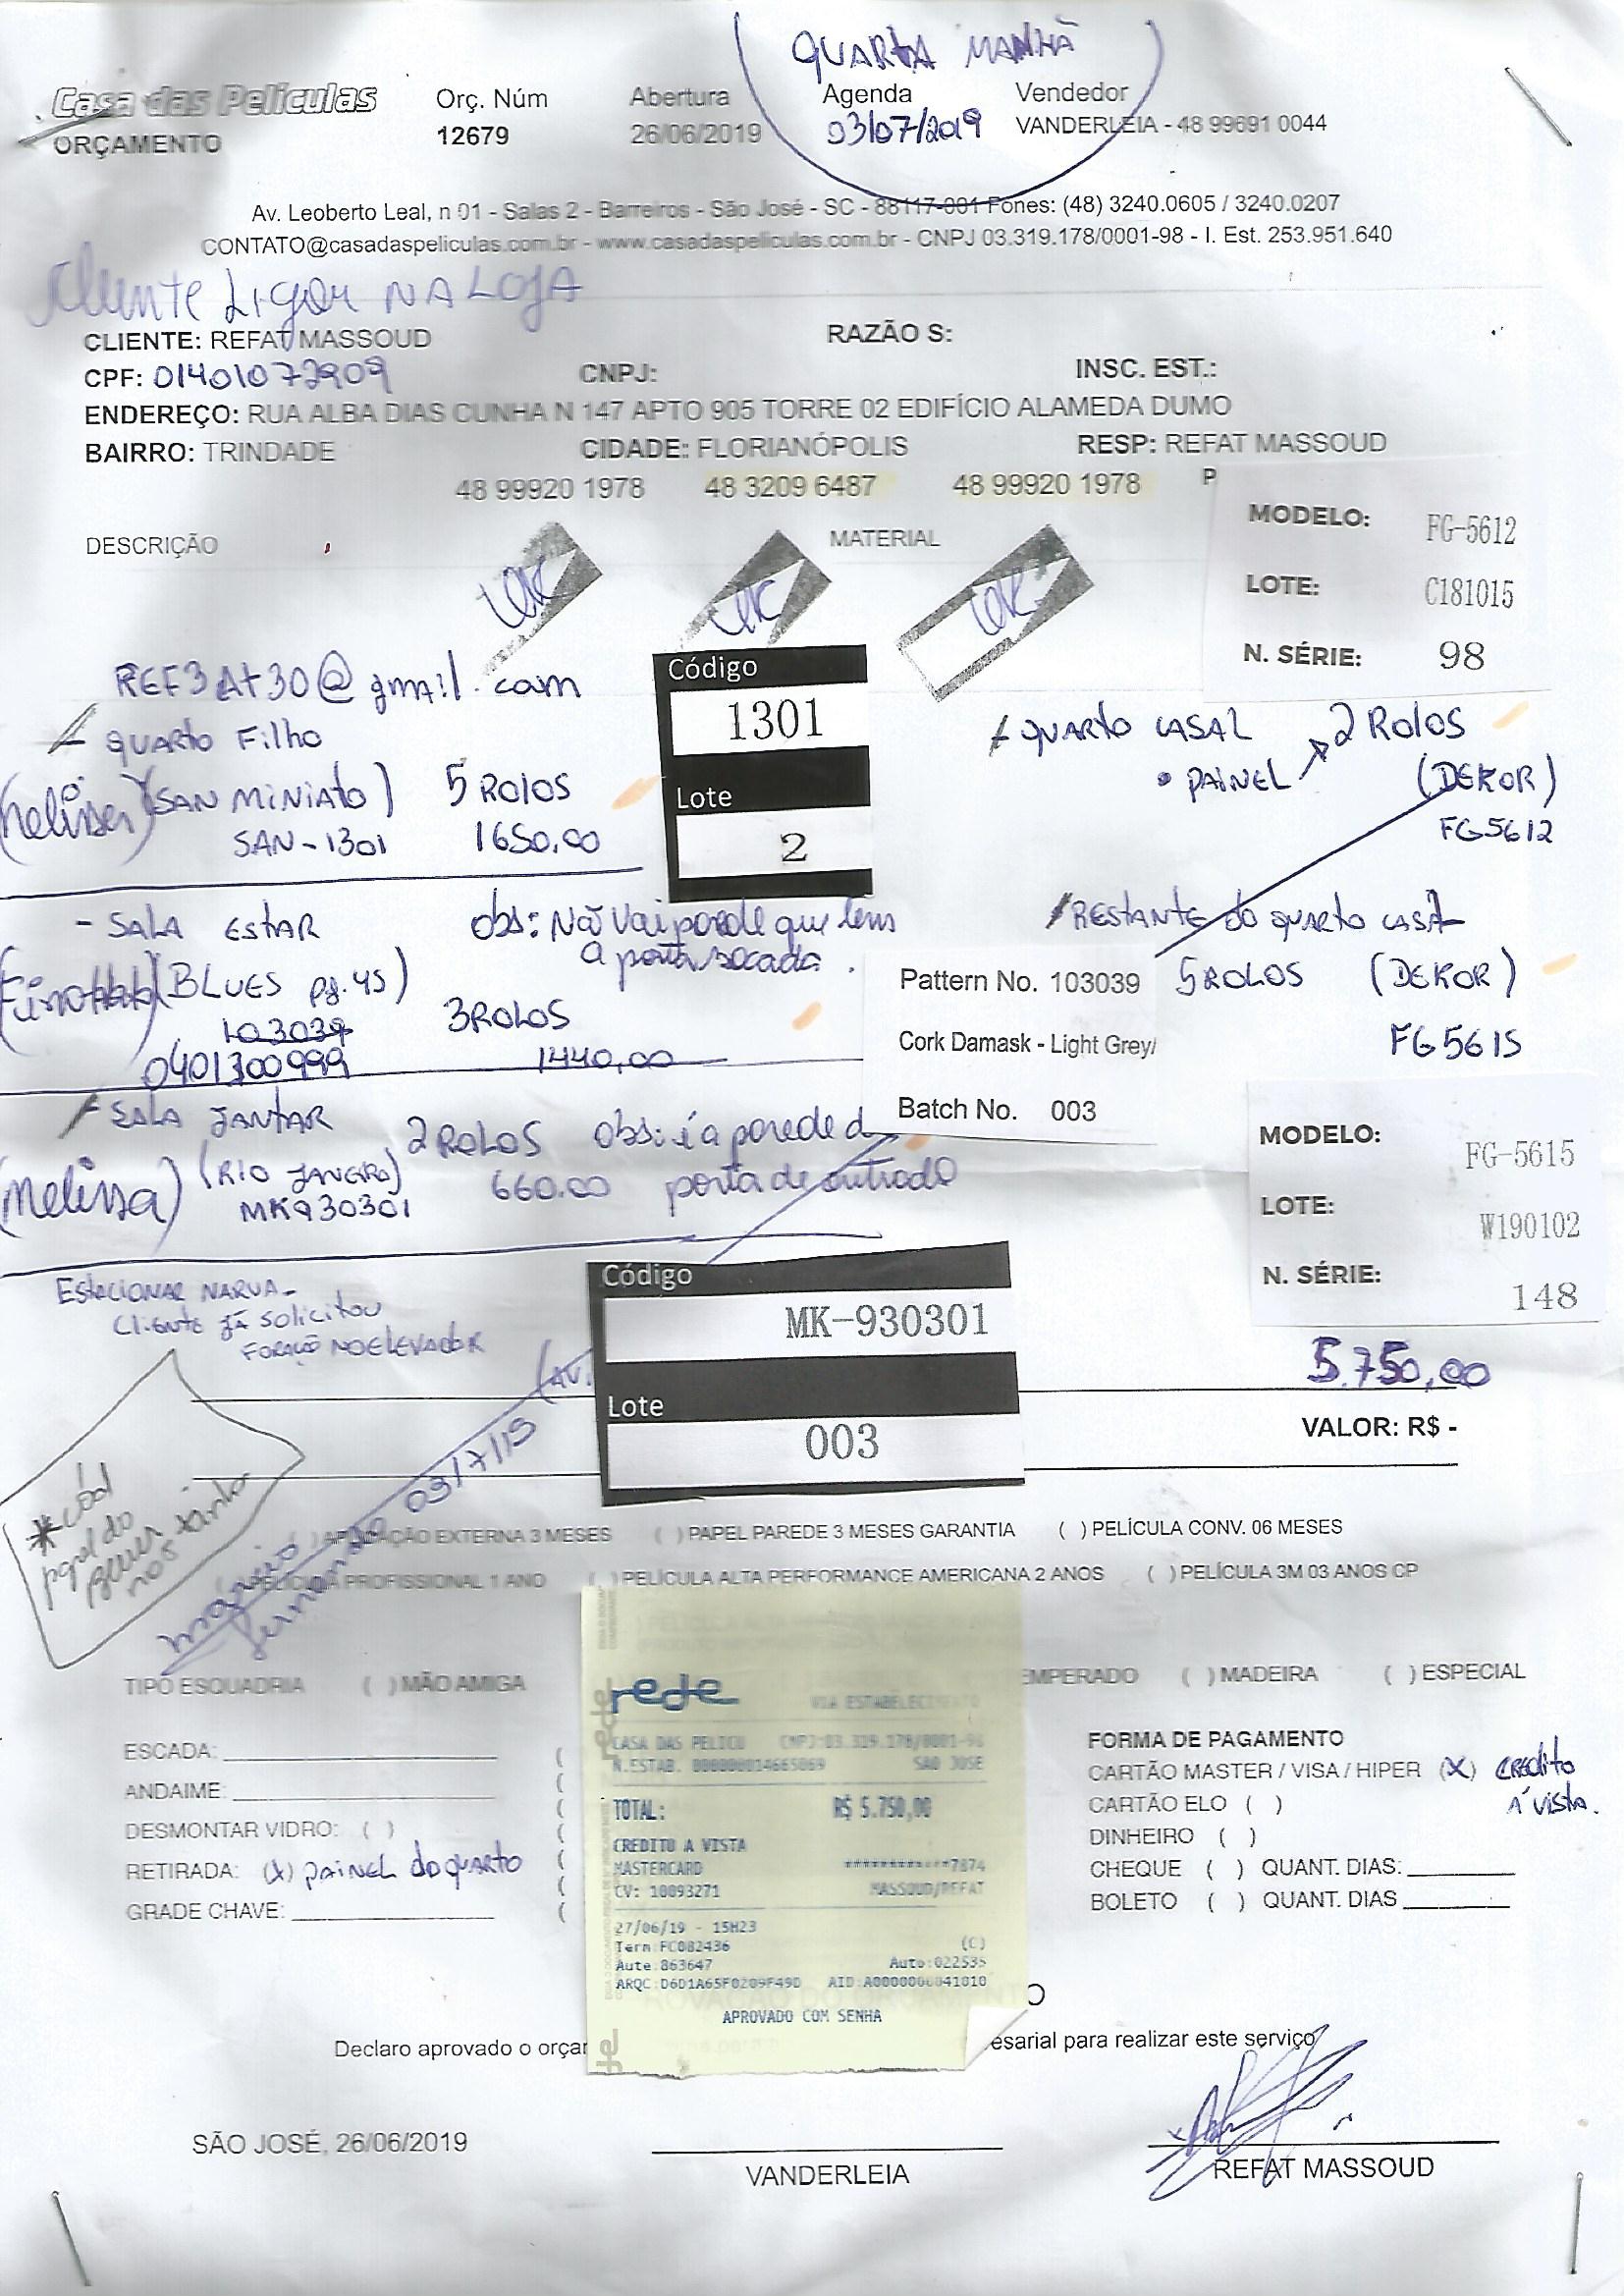 QUARTA MANHÃ
Casa das Películas
ORÇAMENTO
Orç. Núm
12679
Abertura
26/06/2019
Agenda
03/07/2019
Vendedor
VANDERLEIA - 48 99691 0044
Av. Leoberto Leal, n 01 - Salas 2 - Barreiros - São José - SC - 88117-001 Fones: (48) 3240.0605 / 3240.0207
CONTATO@casadaspeliculas.com.br - www.casadaspeliculas.com.br - CNPJ 03.319.178/0001-98 - I. Est. 253.951.640
Cliente Ligou NA LOJA
CLIENTE: REFAT MASSOUD RAZÃO S:
CPF: 01401072909 CNPJ: INSC. EST.:
ENDEREÇO: RUA ALBA DIAS CUNHA N 147 APTO 905 TORRE 02 EDIFÍCIO ALAMEDA DUMO
BAIRRO: TRINDADE CIDADE: FLORIANÓPOLIS RESP: REFAT MASSOUD
48 99920 1978 48 3209 6487 48 99920 1978 P
DESCRIÇÃO MATERIAL
MODELO: FG-5612
LOTE: C181015
N. SÉRIE: 98
REF3At30@gmail.com
Código
1301
Lote
2
- QUARTO Filho
(Melissa) (SAN MINIATO) 5 ROLOS
SAN-1301 1650,00
- QUARTO CASAL 2 ROLOS
• PAINEL (DEKOR)
FG5612
- SALA ESTAR obs: Não vai parede que tem
a porta sacada.
(BLUES pg. 45)
103039 3 ROLOS
0401300999 1440,00
RESTANTE do QUARTO CASAL
5 ROLOS (DEKOR)
FG5615
Pattern No. 103039
Cork Damask - Light Grey/
Batch No. 003
- SALA JANTAR 2 ROLOS obs: é a parede d
(Melissa) (RIO JANEIRO) 660.00 porta de entrada
MK930301
MODELO: FG-5615
LOTE: W190102
N. SÉRIE: 148
ESTACIONAR NA RUA -
Cliente JÁ solicitou
FORAÇÃO NO ELEVADOR
Código
MK-930301
Lote
003
5.750,00
VALOR: R$ -
03/7/19
papel do
( ) APLICAÇÃO EXTERNA 3 MESES ( ) PAPEL PAREDE 3 MESES GARANTIA ( ) PELÍCULA CONV. 06 MESES
( ) PELÍCULA PROFISSIONAL 1 ANO ( ) PELÍCULA ALTA PERFORMANCE AMERICANA 2 ANOS ( ) PELÍCULA 3M 03 ANOS CP
fernando
TIPO ESQUADRIA ( ) MÃO AMIGA EMPERADO ( ) MADEIRA ( ) ESPECIAL
ESCADA:
ANDAIME:
DESMONTAR VIDRO: ( )
RETIRADA: (X) PAINEL do QUARTO
GRADE CHAVE:
rede
VIA ESTABELECIMENTO
CASA DAS PELICU CNPJ:03.319.178/0001-98
N.ESTAB. 000000014665069 SAO JOSE
TOTAL: R$ 5.750,00
CREDITO A VISTA
MASTERCARD ************7874
CV: 10093271 MASSOUD/REFAT
27/06/19 - 15H23
Term:FC082436 (C)
Aute:863647 Auto:022535
ARQC:D6D1A65F0209F49D AID:A0000000041010
APROVADO COM SENHA
FORMA DE PAGAMENTO
CARTÃO MASTER / VISA / HIPER (X) CREDITO
À VISTA.
CARTÃO ELO ( )
DINHEIRO ( )
CHEQUE ( ) QUANT. DIAS:
BOLETO ( ) QUANT. DIAS
Declaro aprovado o orça esarial para realizar este serviço
SÃO JOSÉ, 26/06/2019
VANDERLEIA
REFAT MASSOUD